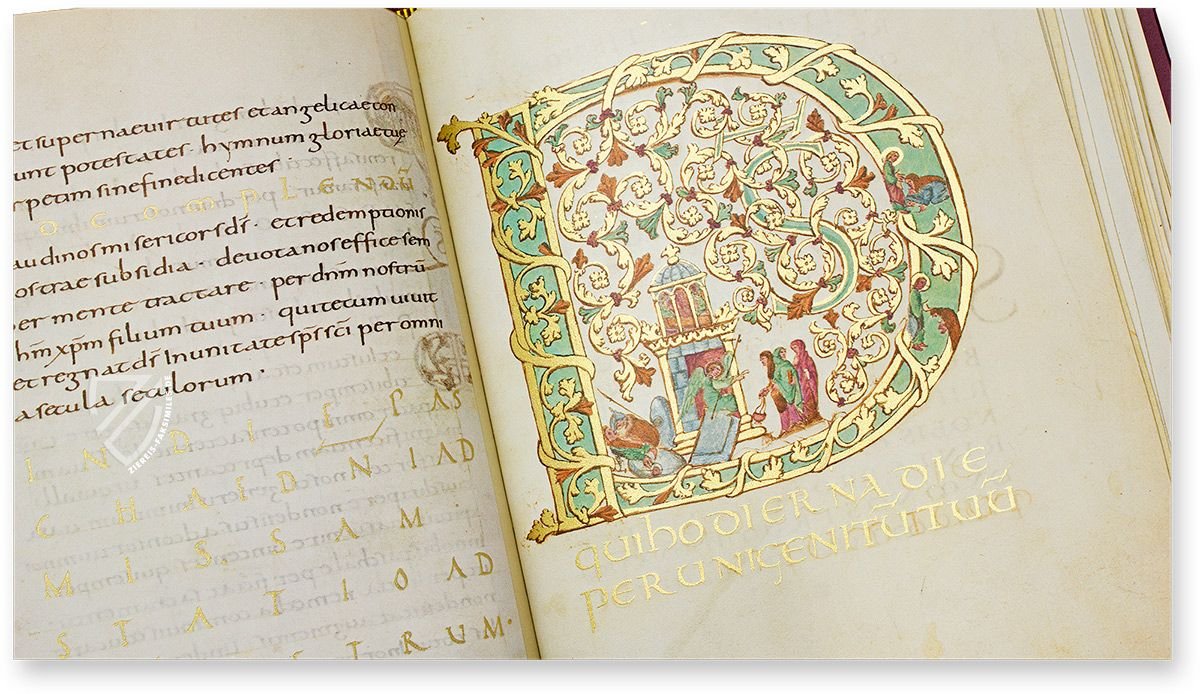 et supernae virtutes et angelicae con
unt potestates · hymnum gloriae tuę
petim sine fine dicentes ·
COMPLENDŪ
audi nos misericors d̄s · et redemptionis
ostrae subsidia · devota nos effice sem
per mente tractare · per dn̄m nostrū
ih̄m xp̄m filium tuum · qui tecum vivit
et regnat d̄s In unitate sp̄s sc̄i per omni
a secula seculorum ·
IN DIE PAS
CHAE DNI AD
MISSAM ·
STATIO AD
TRUM ·
D S
quI hODIERNA DIE
PER UNIGENITŪ TUŪ
ZIEREIS-FAKSIMILE